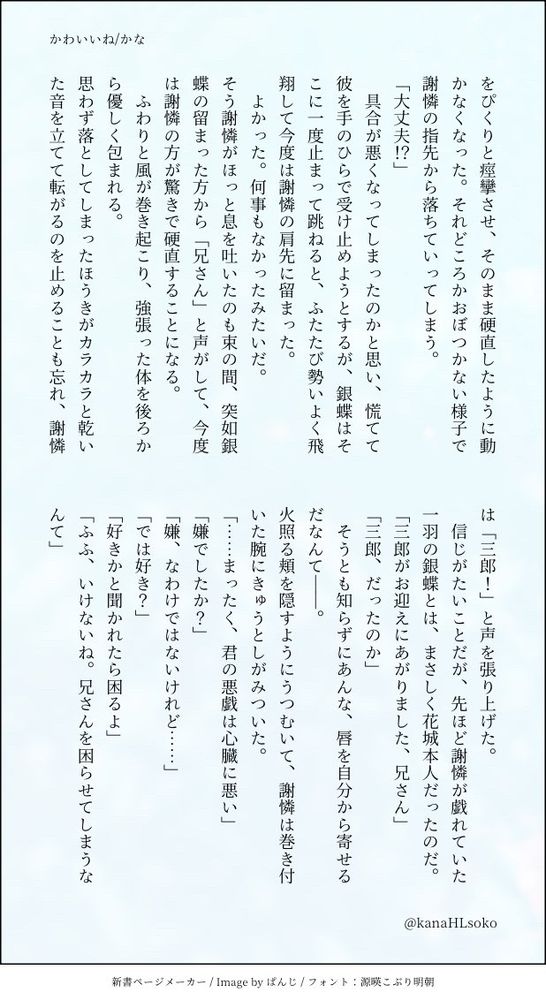 かわいいね/かな
をぴくりと痙攣させ、そのまま硬直したように動
かなくなった。それどころかおぼつかない様子で
謝憐の指先から落ちていってしまう。
「大丈夫!?」
具合が悪くなってしまったのかと思い、慌てて
彼を手のひらで受け止めようとするが、銀蝶はそ
こに一度止まって跳ねると、ふたたび勢いよく飛
翔して今度は謝憐の肩先に留まった。
よかった。何事もなかったみたいだ。
そう謝憐がほっと息を吐いたのも束の間、突如銀
蝶の留まった方から「兄さん」と声がして、今度
は謝憐の方が驚きで硬直することになる。
ふわりと風が巻き起こり、強張った体を後ろか
ら優しく包まれる。
思わず落としてしまったほうきがカラカラと乾い
た音を立てて転がるのを止めることも忘れ、謝憐
は「三郎！」と声を張り上げた。
信じがたいことだが、先ほど謝憐が戯れていた
一羽の銀蝶とは、まさしく花城本人だったのだ。
「三郎がお迎えにあがりました、兄さん」
「三郎、だったのか」
そうとも知らずにあんな、唇を自分から寄せる
だなんて――。
火照る頬を隠すようにうつむいて、謝憐は巻き付
いた腕にきゅうとしがみついた。
「……まったく、君の悪戯は心臓に悪い」
「嫌でしたか？」
「嫌、なわけではないけれど……」
「では好き？」
「好きかと聞かれたら困るよ」
「ふふ、いけないね。兄さんを困らせてしまうな
んて」
@kanaHLsoko
新書ページメーカー / Image by ぱんじ / フォント：源暎こぶり明朝